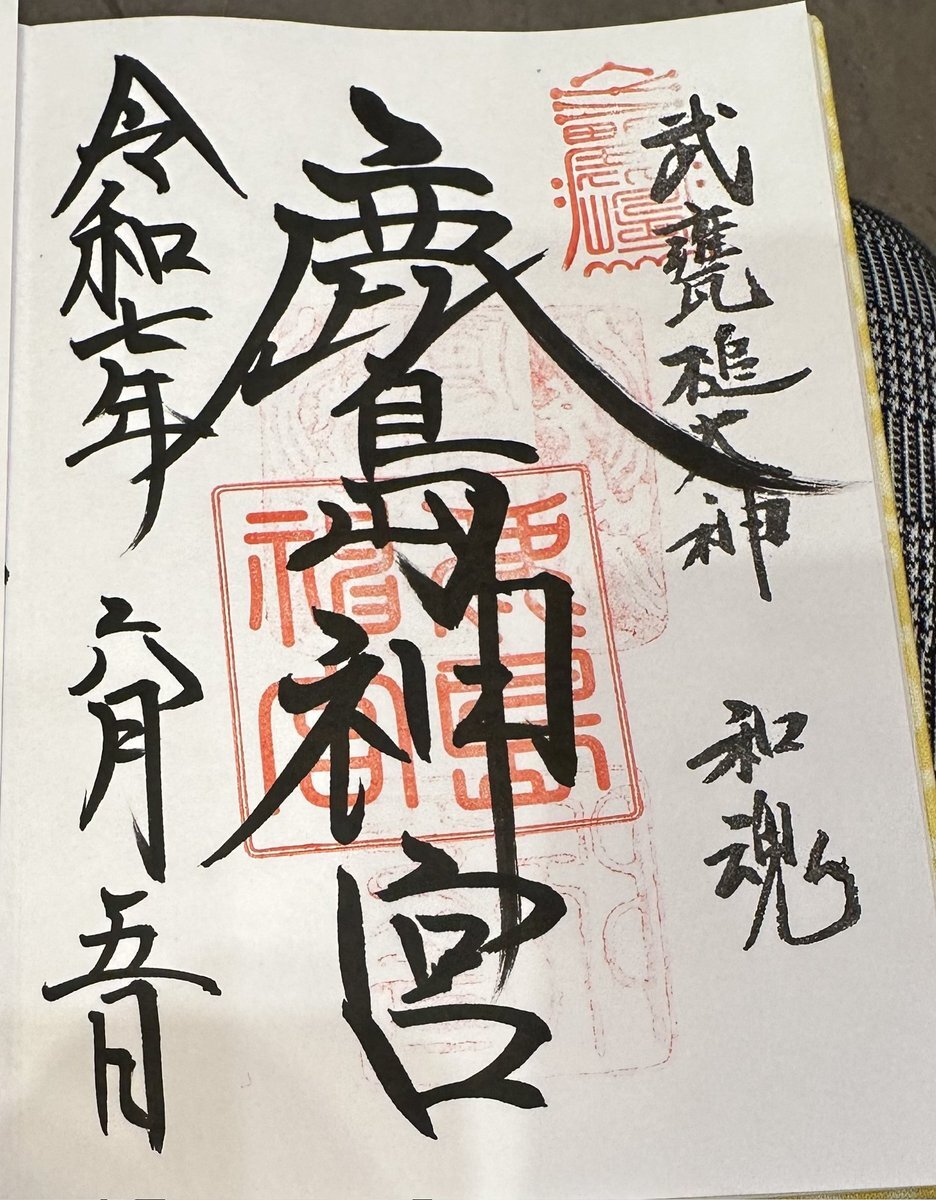 武甕槌大神 和魂
鹿島神宮
令和七年 六月 五日
鹿島神宮